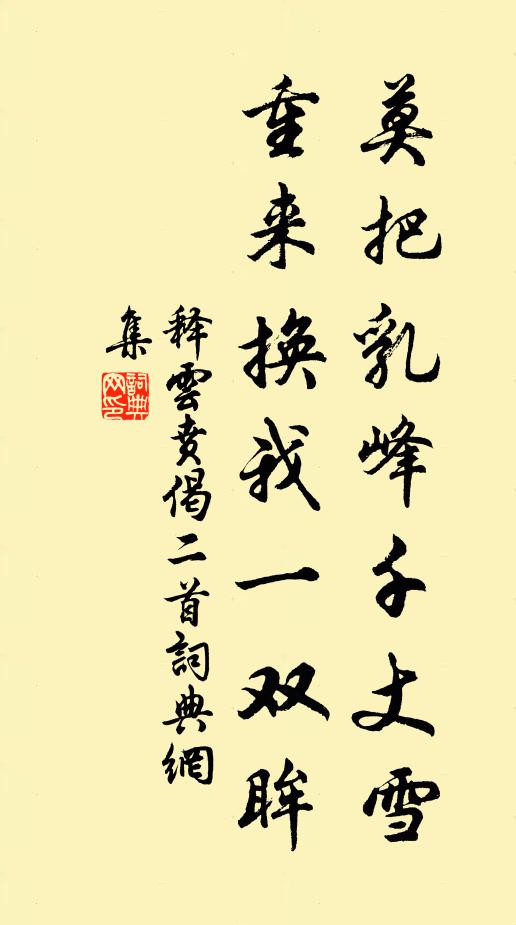 莫把乳峰千丈雪
重来换我一双眸
释雲賁偈二首詞典網
集
詞典
网印